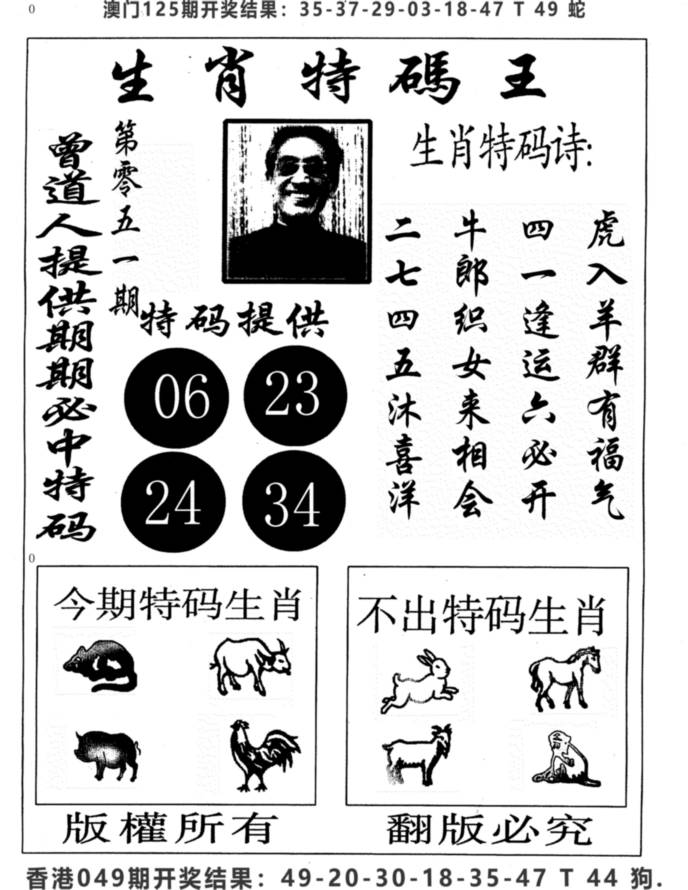 0
澳门125期开奖结果：35-37-29-03-18-47 T 49 蛇
生肖特碼王
曾道人提供期期必中特码
第零五一期
生肖特码诗:
虎入羊群有福气
四一逢运六必开
牛郎织女来相会
二七四五沐喜洋
特码提供
06
23
24
34
0
今期特码生肖
不出特码生肖
版權所有
翻版必究
香港049期开奖结果：49-20-30-18-35-47 T 44 狗.